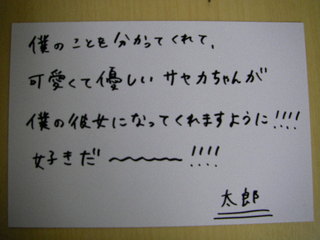 僕のことを分かってくれて、
可愛くて優しいサヤカちゃんが
僕の彼女になってくれますように!!!!
好きだ〜〜〜〜!!!!
太郎